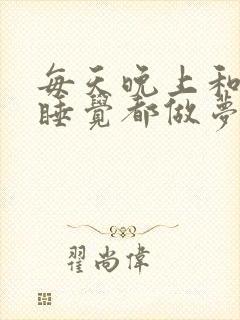 每天晚上和
睡覺都做夢
翟尚偉